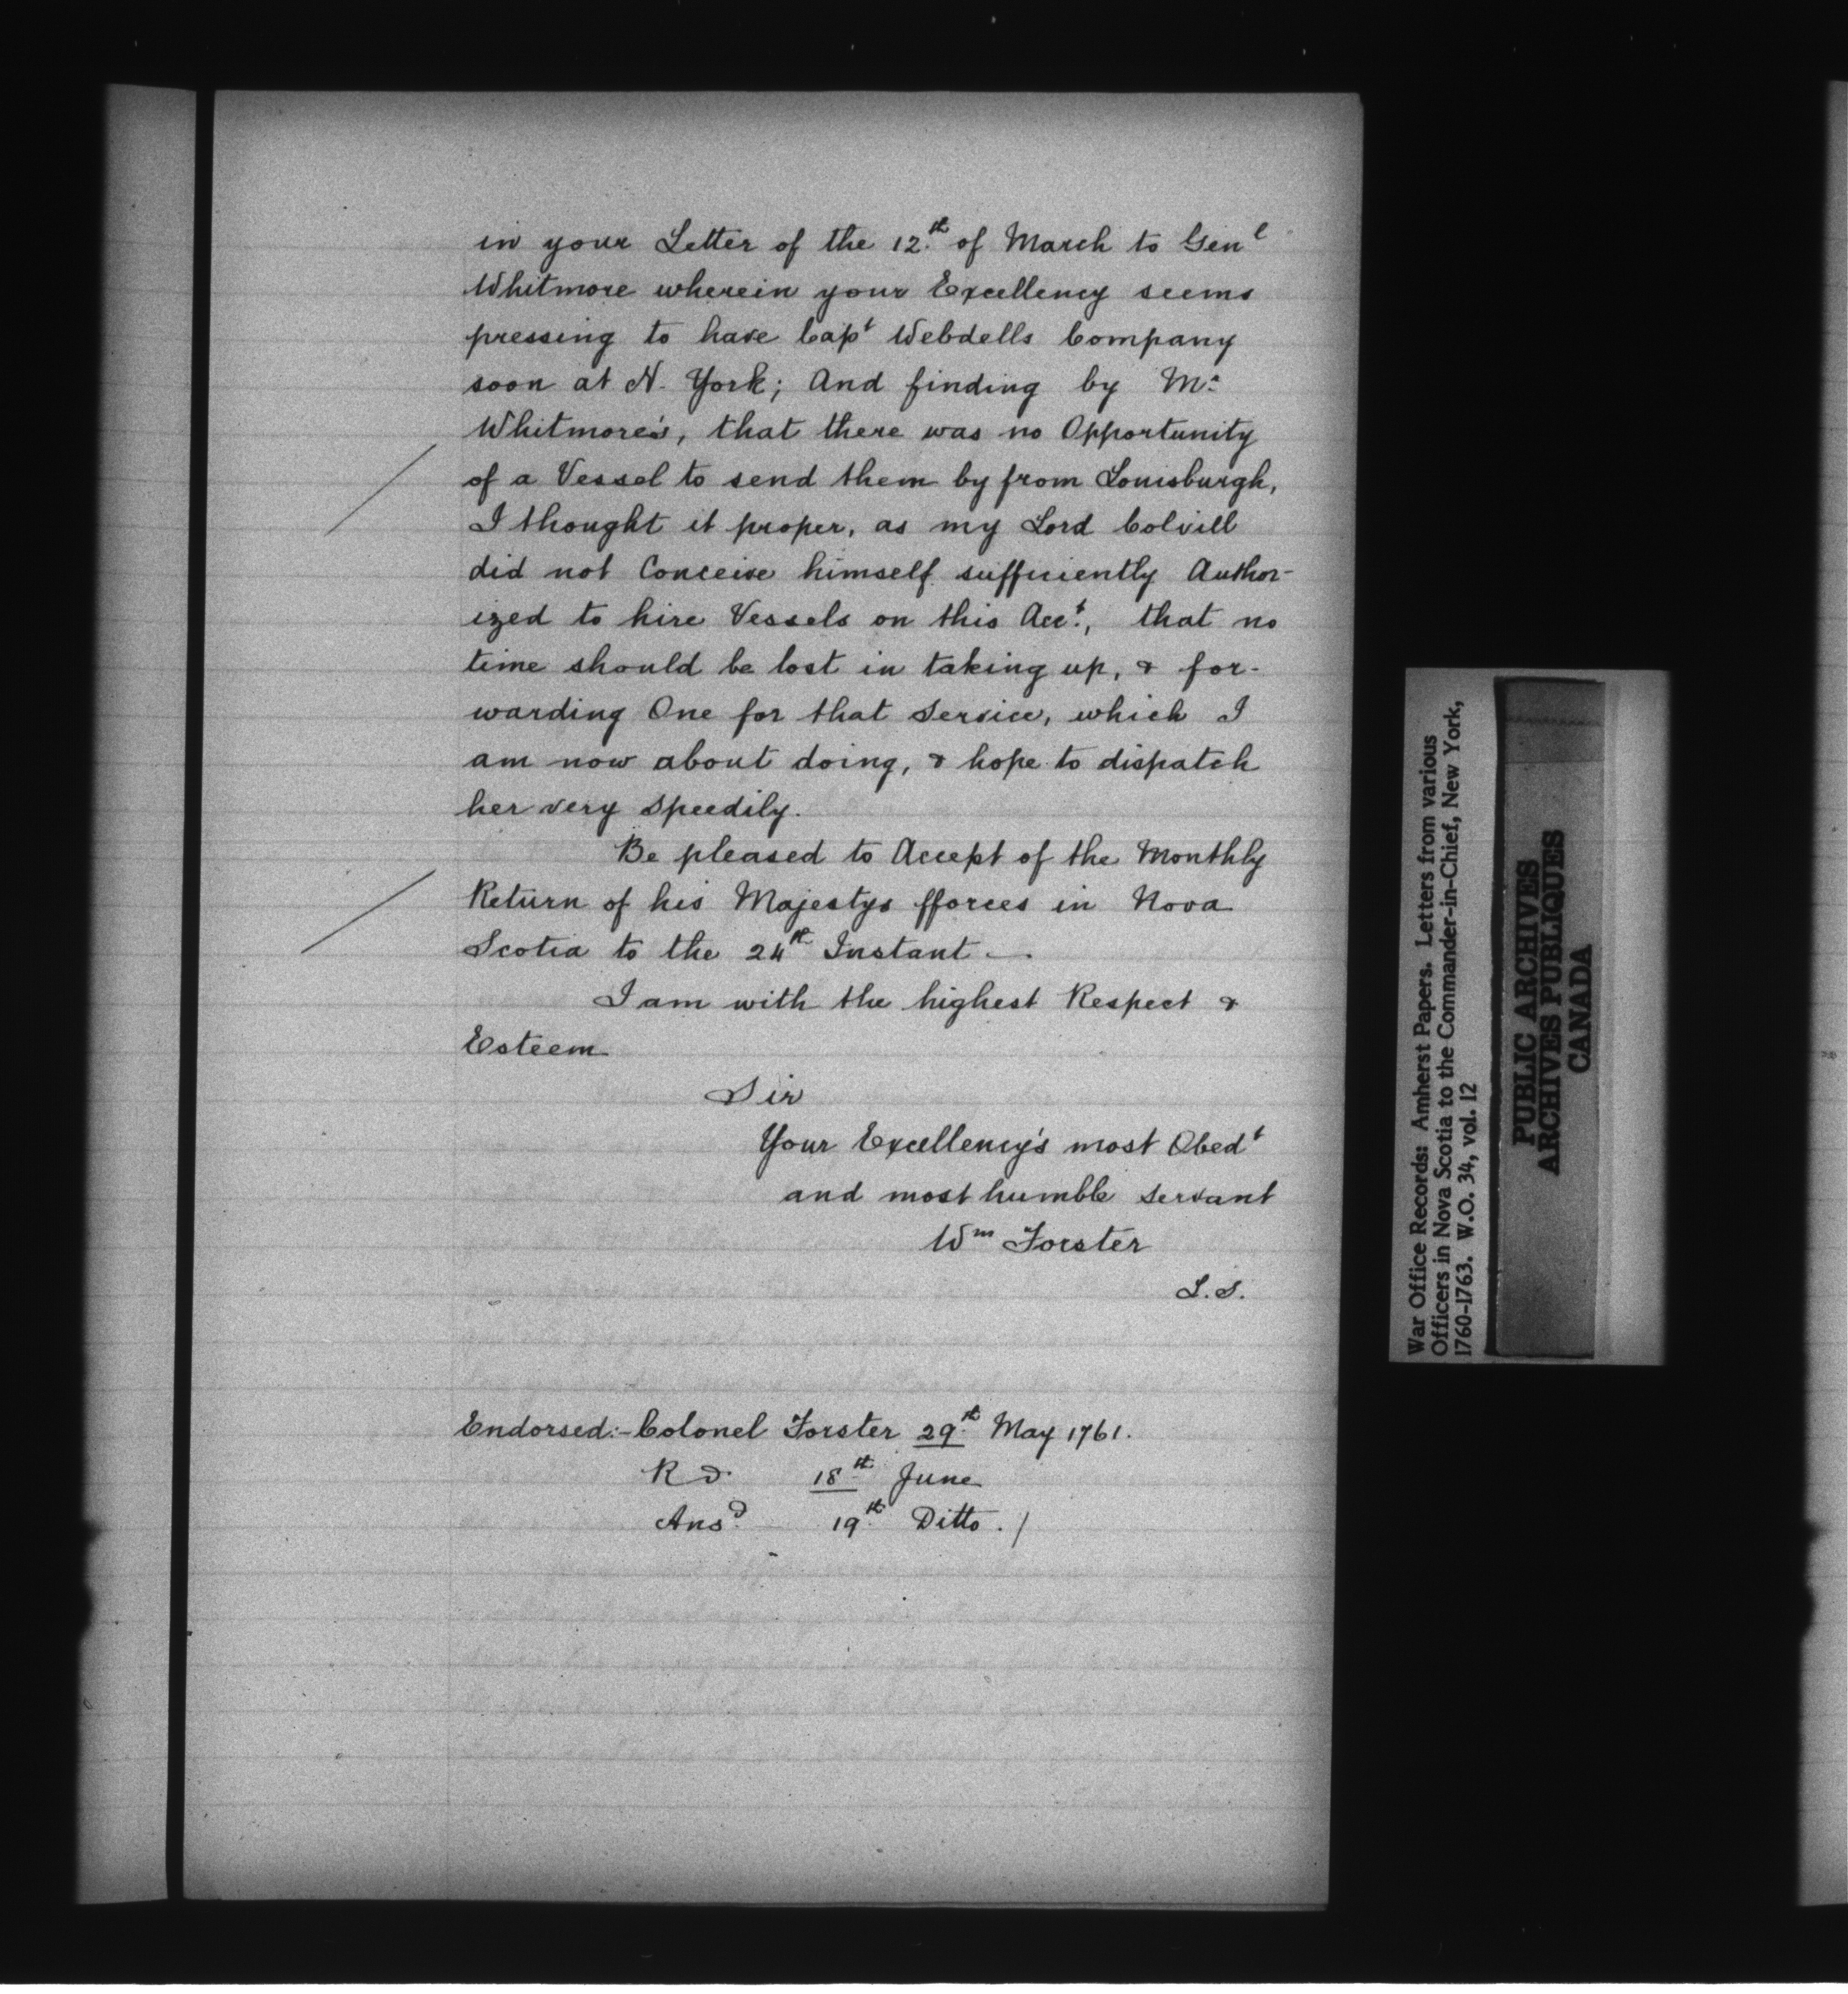 in your Letter of the 12th of March to Genl
Whitmore wherein your Excellency seems
pressing to have Capt Webdells Company
soon at N. York; And finding by Mr
Whitmore's, that there was no Opportunity
of a Vessel to send them by from Louisburgh,
I thought it proper, as my Lord Colvill
did not Conceive himself sufficiently Author-
ized to hire Vessels on this Acct, that no
time should be lost in taking up, & for-
warding One for that Service, which I
am now about doing, & hope to dispatch
her very Speedily.
Be pleased to Accept of the Monthly
Return of his Majestys fforces in Nova
Scotia to the 24th Instant —.
I am with the highest Respect &
Esteem
Sir
Your Excellency's most Obedt
and most humble Servant
Wm Forster
L.S.
Endorsed:- Colonel Forster 29th May 1761.
Rd. 18th June
Ansd. 19th Ditto. /
War Office Records: Amherst Papers. Letters from various
Officers in Nova Scotia to the Commander-in-Chief, New York,
1760-1763. W.O. 34, vol. 12
PUBLIC ARCHIVES
ARCHIVES PUBLIQUES
CANADA